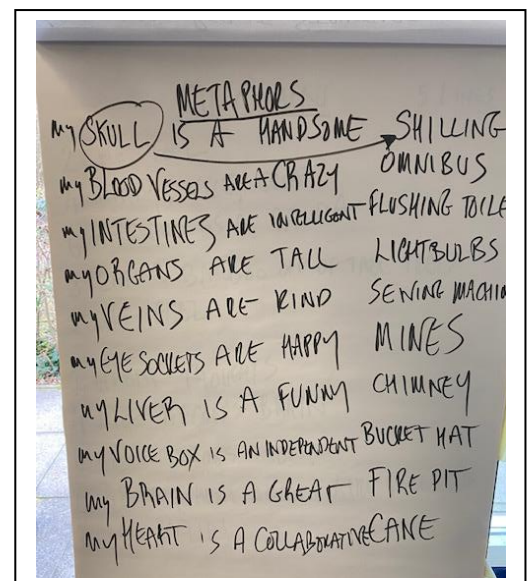 METAPHORS
my SKULL IS A HANDSOME SHILLING
my BLOOD VESSELS ARE A CRAZY OMNIBUS
my INTESTINES ARE INTELLIGENT FLUSHING TOILE
my ORGANS ARE TALL LIGHTBULBS
my VEINS ARE KIND SEWING MACHIN
my EYE SOCKETS ARE HAPPY MINES
my LIVER IS A FUNNY CHIMNEY
my VOICE BOX IS AN INDEPENDENT BUCKET HAT
my BRAIN IS A GREAT FIRE PIT
my HEART IS A COLLABORATIVE CANE